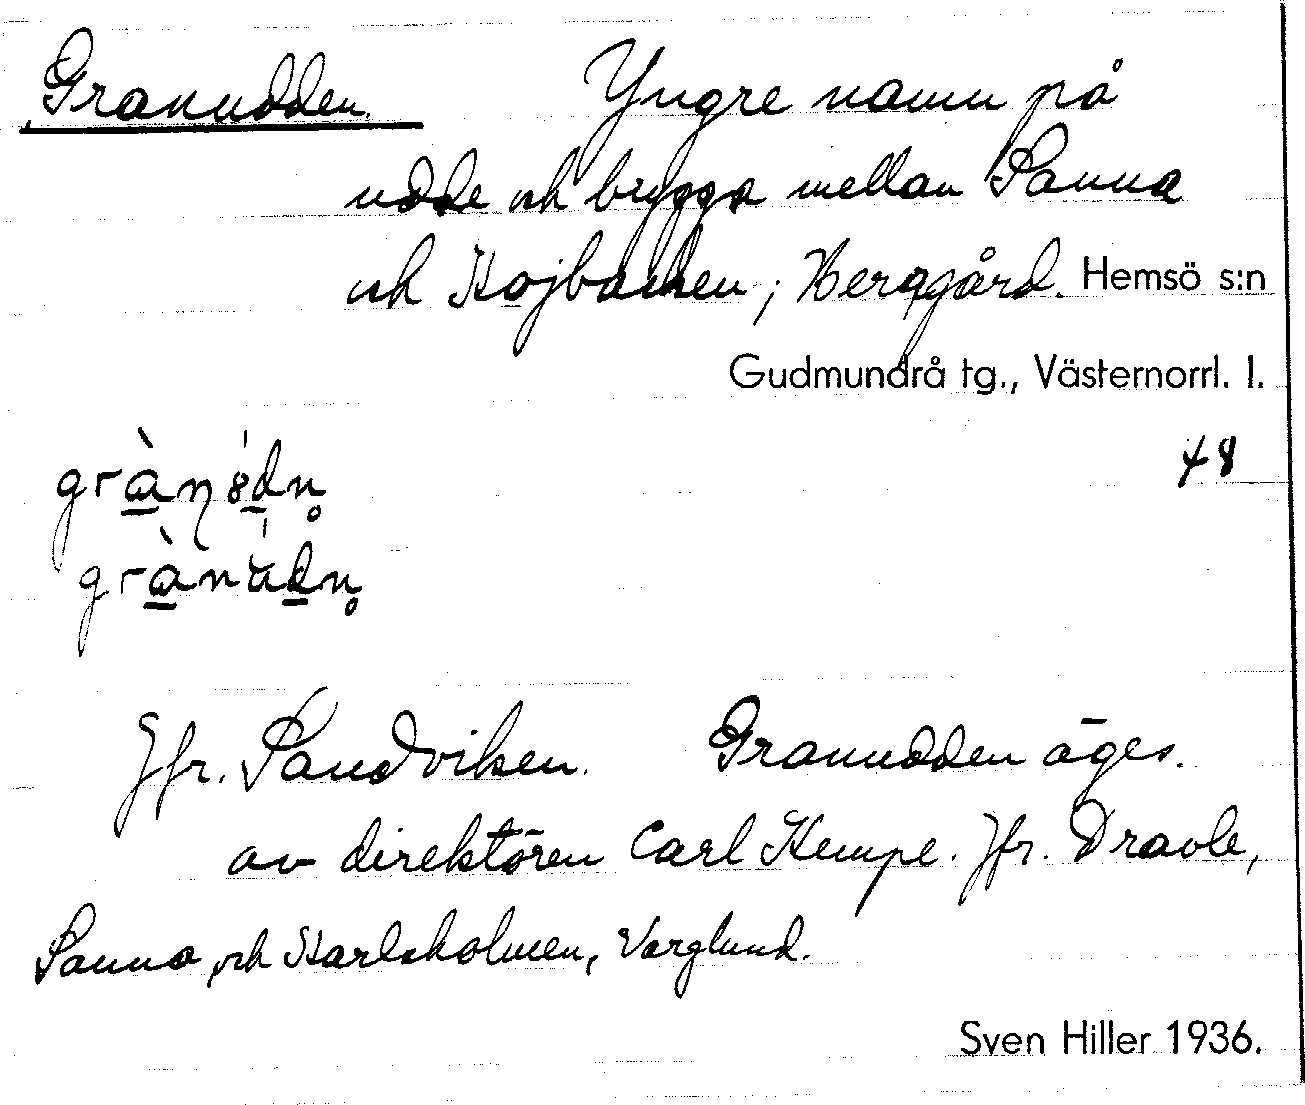 Granudden. Yngre namn på
udde och brygga mellan Sanna
och Kojbacken; Berggård. Hemsö s:n
Gudmundrå tg., Västernorrl. l.
48
Jfr. Sandviken. Granudden äges.
av direktören Carl Kempe. Jfr. Dravle,
Sanna, och Karlsholmen, Varglund.
Sven Hiller 1936.